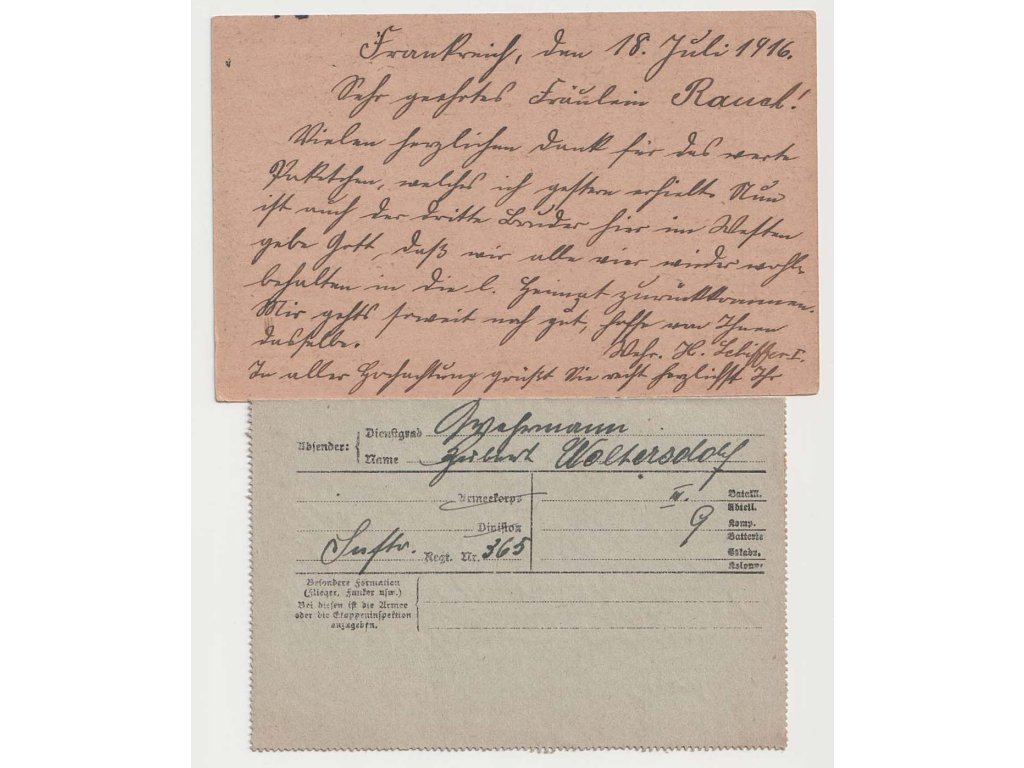 Frankreich, den 18. Juli 1916.
Sehr geehrtes Fräulein Rauch!
Vielen herzlichen Dank für das werte
Paketchen, welches ich gestern erhielt. Nun
ist auch der dritte Bruder hier im Westen
gebe Gott, daß wir alle vier wieder wohl-
behalten in die l. Heimat zurückkommen.
Mir gehts soweit noch gut, hoffe von Ihnen
dasselbe.
Wehr. H.
In aller Hochachtung grüßt Sie recht herzlichst Ihr
Absender:
Dienstgrad Wehrmann
Name Hubert Woltersdorf
Armeekorps
III. Bataill.
Abteil.
Division
9 Komp.
Batterie
Inftr. Regt. Nr. 365
Eskadr.
Kolonne
Besondere Formation
(Flieger, Funker usw.)
Bei diesen ist die Armee
oder die Etappeninspektion
anzugeben.